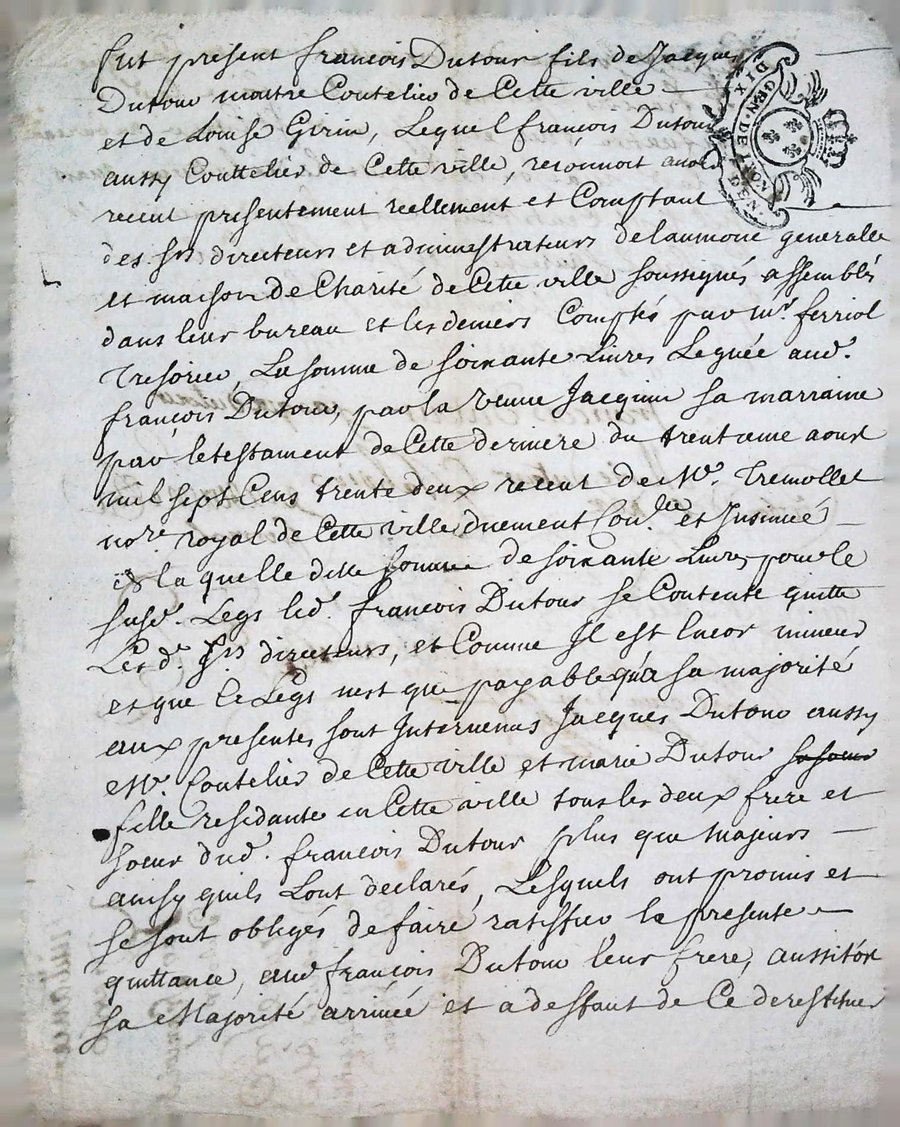 fut present francois Dutour fils de Jacques
Dutour maitre Coutelier de Cette ville
et de Louise Girin, Lequel francois Dutour
aussy Couttelier de Cette ville, reconnoit avoir
receu presentement reellement et Comptant
des srs directeurs et administrateurs de laumone generalle
et maison de Charité de Cette ville soussignés assemblés
dans leur bureau et les deniers Comptés par mr. ferriol
Tresorier, La somme de soixante Livres Leguée aud.
francois Dutour, par la veuve Jacquin sa marraine
par le testament de Cette derniere du trentieme aoust
mil sept Cens trente deux receut de Me. Tremollet
nore. royal de Cette ville duement Conlle. et Insinué
de la quelle ditte somme de soixante Livres pour le
susd. Legs led. francois Dutour se Contente quitte
Lesd. Srs directeurs, et Comme Il est Encor mineur
et que le Legs nest que payable qu'a sa majorité
aux presentes sont Intervenus Jacques Dutour aussy
Me. Coutelier de Cette ville et marie Dutour sa soeur
fille residante en Cette ville tous les deux frere et
soeur dud. francois Dutour plus que majeurs
ainsy quils Lont declarés, Lesquels ont promis et
se sont obligés de faire ratiffier la presente
quittance, aud francois Dutour leur frere, aussitôt
sa Majorité arrivée et a deffaut de Ce de restituer
GEN. DE LYON
DIX DEN.